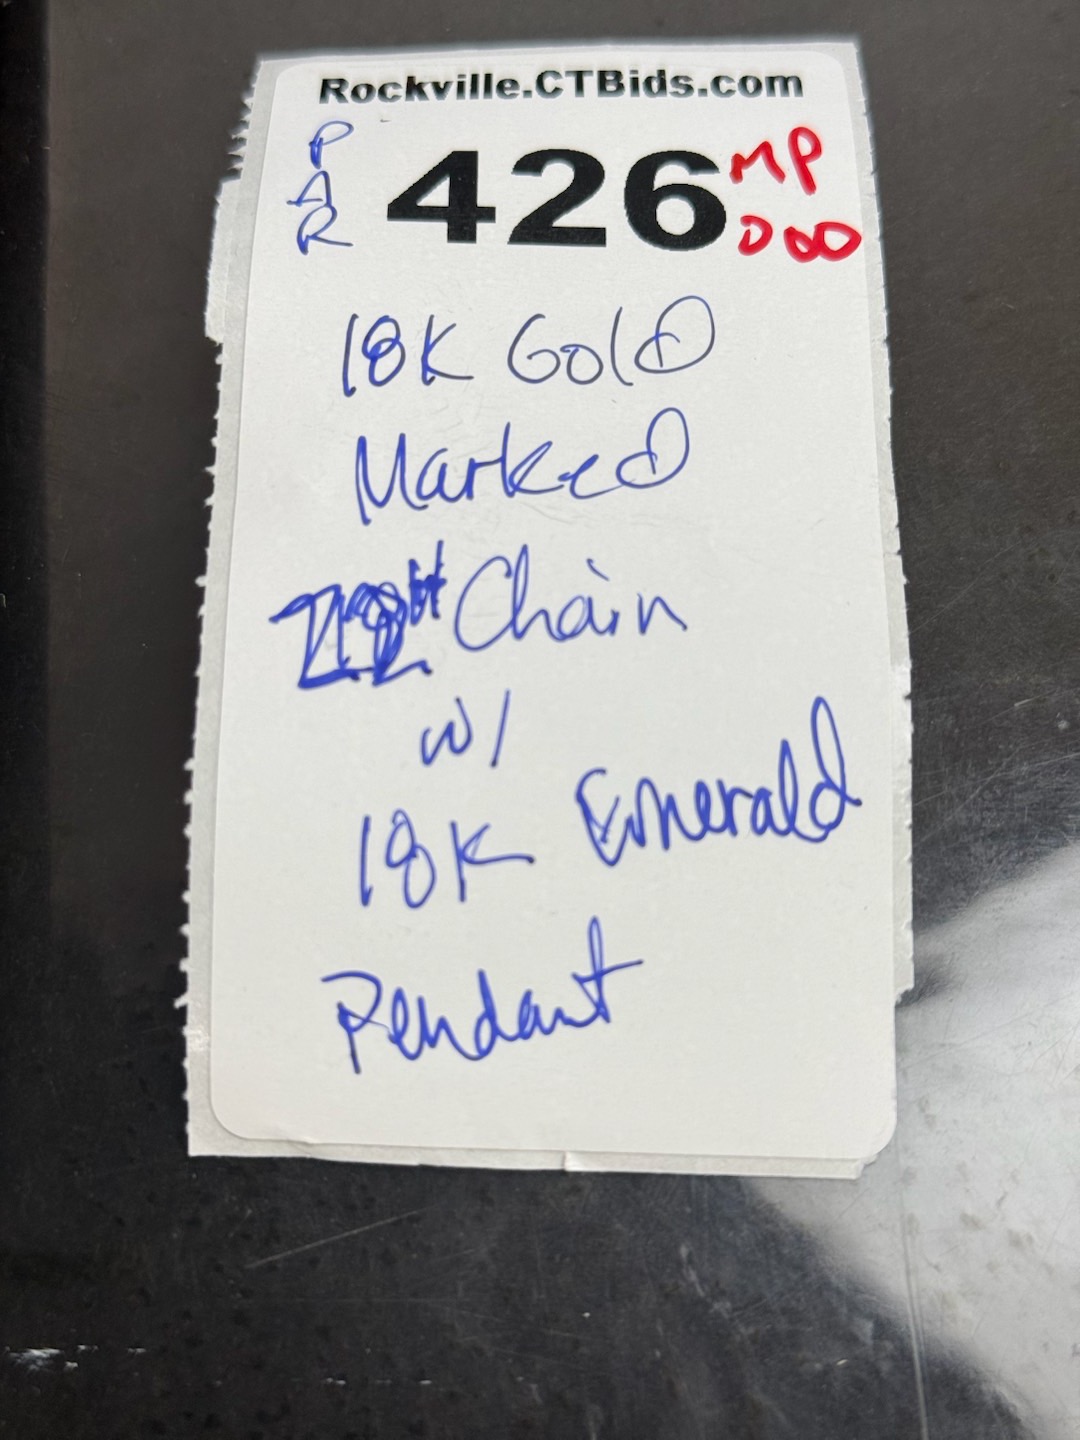 Rockville.CTBids.com
PAR
426
MP
18K Gold
Marked
Chain
w/
18K Emerald
Pendant